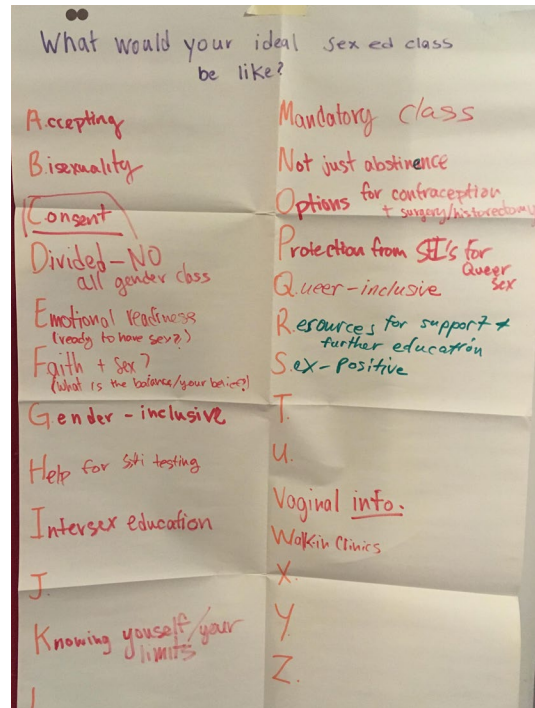 What would your ideal sex ed class
be like?
A.ccepting
B.isexuality
Consent
Divided - NO
all gender class
Emotional readiness
(ready to have sex?)
Faith + Sex?
(What is the balance/your belief?)
Gender - inclusive
Help for Sti testing
Intersex education
J.
Knowing youself/your
limits
L
Mandatory class
Not just abstinence
Options for contraception
+ surgery/historectomy
Protection from STI's for
Queer
sex
Queer-inclusive
R.esources for support +
further education
S.ex-Positive
T.
U.
Vaginal info.
Walk-in Clinics
X.
Y.
Z.